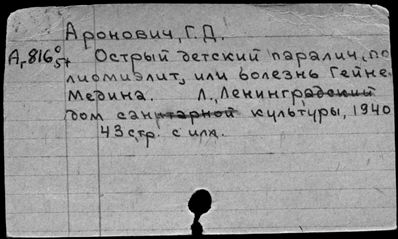 Аронович, Г.Д.
Острый детский паралич, по
лиомиэлит, или болезнь Гейне
Медина. Л., Ленинградский
дом санитарной культуры, 1940
43 стр. с илл.